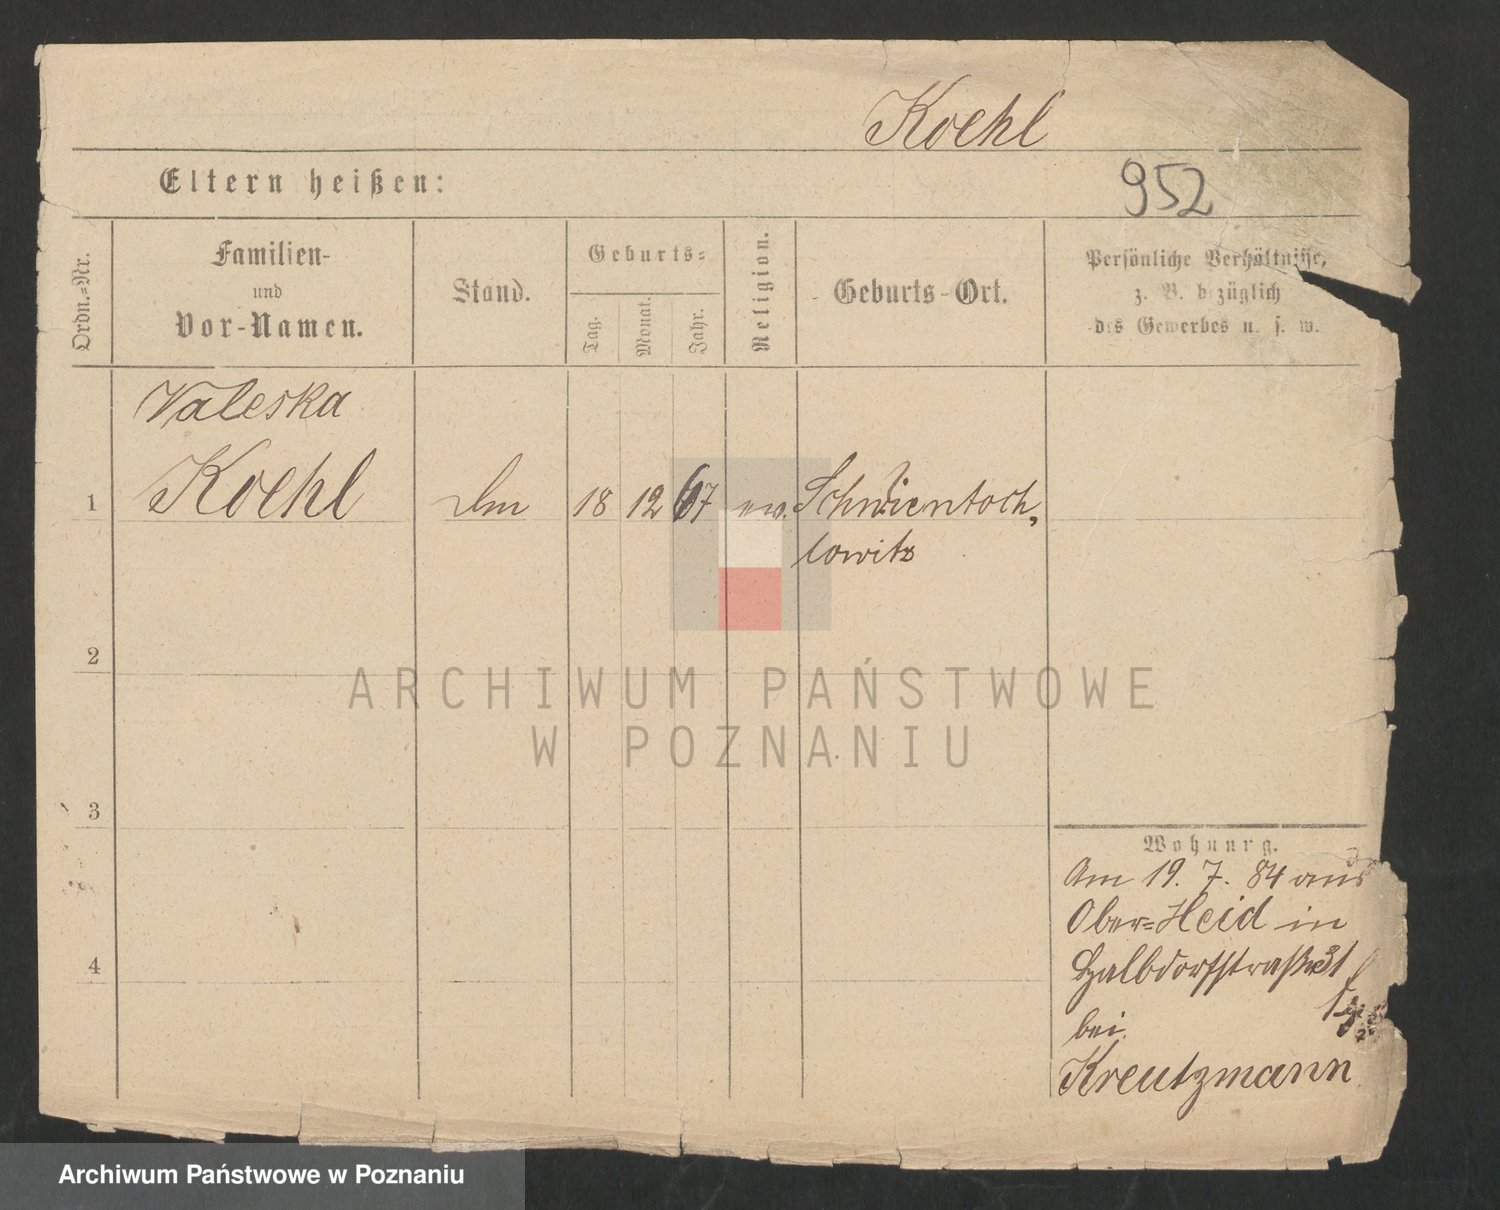 Koehl
952
Eltern heißen:
Ordn.-Nr.
Familien-
und
Vor-Namen.
Stand.
Geburts-
Tag.
Monat.
Jahr.
Religion.
Geburts-Ort.
Persönliche Verhältnisse,
z. B. bezüglich
des Gewerbes u. s. w.
Valeska
1 Koehl 18 12 67 ev. Schwientoch-
lowitz
2
3
4
Wohnung.
Am 19. 7. 84 aus
Ober-Heid in
Halbdorfstraße 31
bei
Kreutzmann
ARCHIWUM PAŃSTWOWE
W POZNANIU
Archiwum Państwowe w Poznaniu